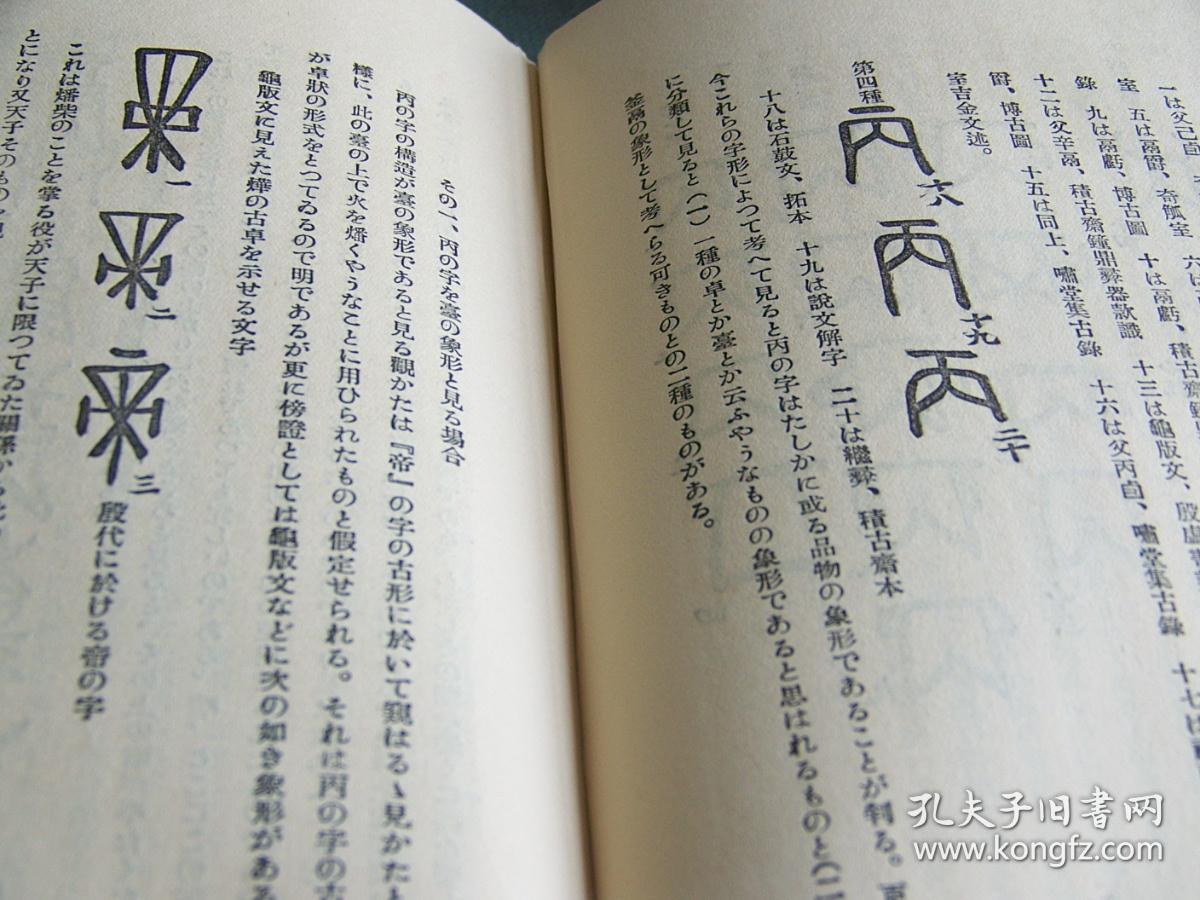 一は父己卣
室 五は鬲爵、奇觚室 六は
錄 九は鬲鬳、博古圖 十は鬲鬳、積古齋
十二は父辛鬲、積古齋鐘鼎彝器款識 十三は龜版文、殷虛
爵、博古圖 十五は同上、嘯堂集古錄 十六は父丙卣、嘯堂集古錄 十七は
室吉金文述。
第四種
十八
十九
二十
十八は石鼓文、拓本 十九は說文解字 二十は繼彝、積古齋本
今これらの字形よつて考へて見ると丙の字はたしかに或る品物の象形であることが判る。
に分類して見ると(一)一種の卓とか臺とか云ふやうなものの象形であると思はれるものと(二
釜鬲の象形として考へらる可きものとの二種のものがある。
その一、丙の字を臺の象形と見る場合
丙の字の構造が臺の象形であると見る觀かたは『帝』の字の古形に於いて窺はるゝ見かたと
樣に、此の臺の上で火を燔くやうなことに用ひられたものと假定せられる。それは丙の字の古
が卓狀の形式をとつてゐるので明であるが更に傍證としては龜版文などに次の如き象形がある
龜版文に見えた燁の古卓を示せる文字
一
二
三
殷代に於ける帝の字
これは燔柴のことを掌る役が天子に限つてゐた關係から
とになり又天子そのもの